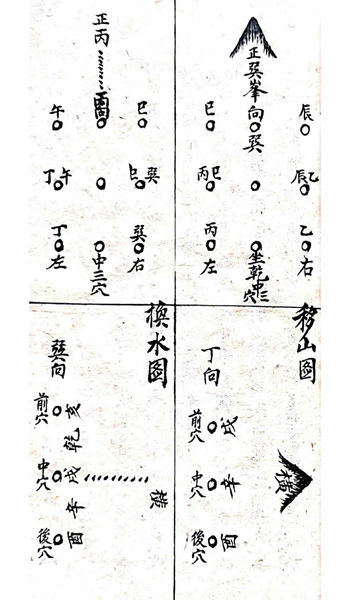 移山圖
正巽峯向巽
辰
乙辰
乙右
坐乾中三穴
巳
巳丙
丙左
橫
丁向
前穴
戌
中穴
辛
後穴
酉
換水圖
正丙
向
巳
巽巳
巽右
中三穴
午
午丁
丁左
橫
巽向
前穴
亥
乾
中穴
戌
辛
後穴
酉